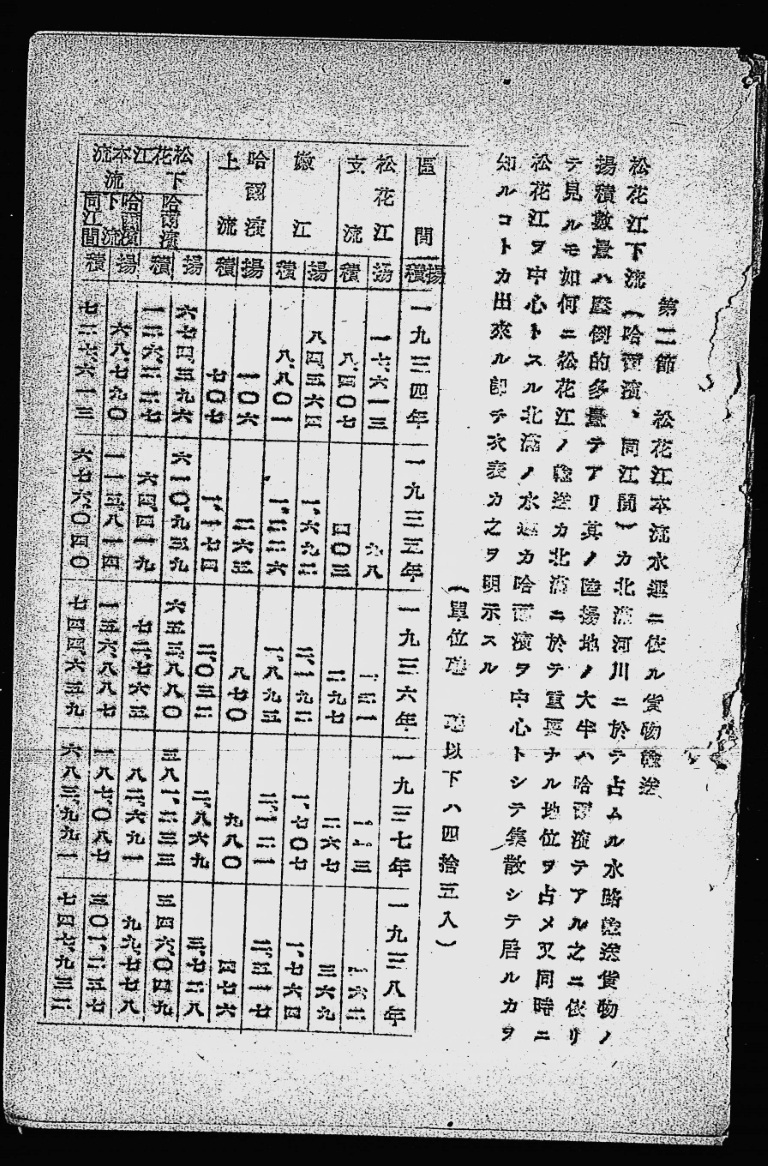 第二節　松花江本流水運ニ依ル貨物輸送
松花江下流(哈爾濱、同江間)カ北滿河川ニ於テ占ムル水路輸送貨物ノ
揚積數量ハ壓倒的多量テアリ其ノ陸揚地ノ大半ハ哈爾濱テアル之ニ依リ
テ見ルモ如何ニ松花江ノ輸送カ北滿ニ於テ重要ナル地位ヲ占メ又同時ニ
松花江ヲ中心トスル北滿ノ水運カ哈爾濱ヲ中心トシテ集散シテ居ルカヲ
知ルコトカ出來ル即チ次表カ之ヲ明示スル
(單位瓲　瓲以下ハ四捨五入)
區間 揚積 一九三四年 一九三五年 一九三六年 一九三七年 一九三八年
松花江支流 揚 一七、六一三 九八 一一三 一六二
積 八、四〇七 四〇三 二九七 二六七 三六九
嫩江 揚 八四、三六四 一、六九二 二、一九二 一、七〇七 一、七六四
積 八、八〇一 一、八九五 二、一二一 二、三一七
哈爾濱上流 揚 一〇六 二六五 八七〇 九八〇 四七六
積 七〇七 一、一七四 二、〇三二 二、八六九 三、七二八
松花江本流 下流 哈爾濱 揚 六七四、五九六 六一〇、九三九 六五三、八八〇 五八一、二三三 五四六、〇四九
積 六四、四一九 七二、七六五 八二、六九一 九九、七七八
哈爾濱下流同江間 揚 六八、七九〇 一一五、八一四 一五六、八八七 一八七、〇八七
積 七二七、六一三 六七六、〇四〇 七四四、六三九 六八三、九九一 七四七、九三二